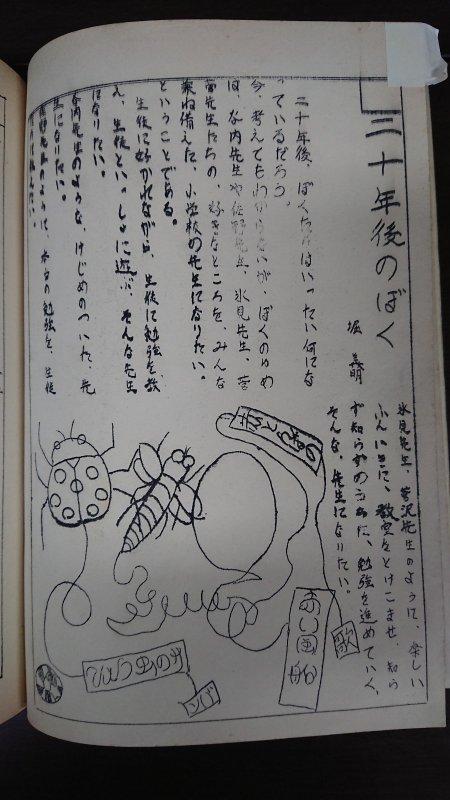 二十年後のぼく
堀
二十年後、ぼくたちはいったい何にな
っているだろう。
今、考えてもわからないが、ぼくのゆめ
は、谷内先生や佐野先生、氷見先生、菅
沢先生たちの、好きなところを、みんな
兼ね備えた、小学校の先生になりたい。
ということである。
生徒に好かれながら、生徒に勉強を教
え、生徒といっしょに遊ぶ、そんな先生
になりたい。
谷内先生のような、けじめのついた、先
生になりたい。
先生のように、勉強を、生徒
氷見先生、菅沢先生のように、楽しい
ふんいきに、教室をとけこませ、知ら
ず知らずのうちに、勉強を進めていく、
そんな、先生になりたい。
赤い風船
歌
てんとう虫のサ
ンバ